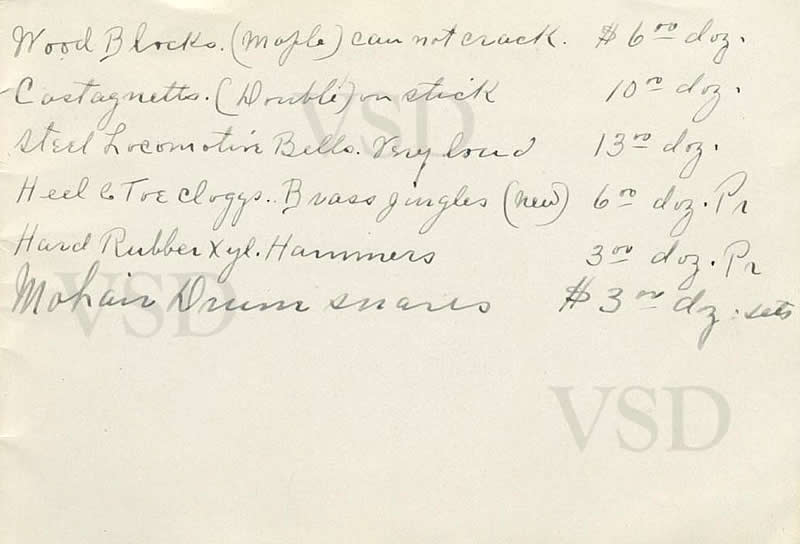 Wood Blocks. (Maple) can not crack. $6.00 doz.
Castagnetts. (Double) on stick 10.00 doz.
Steel Locomotive Bells. Very loud 13.00 doz.
Heel & Toe cloggs. Brass jingles (new) 6.00 doz. Pr
Hard Rubber Xyl. Hammers 3.00 doz. Pr
Mohair Drum snares $3.00 dz. sets
VSD
VSD
VSD